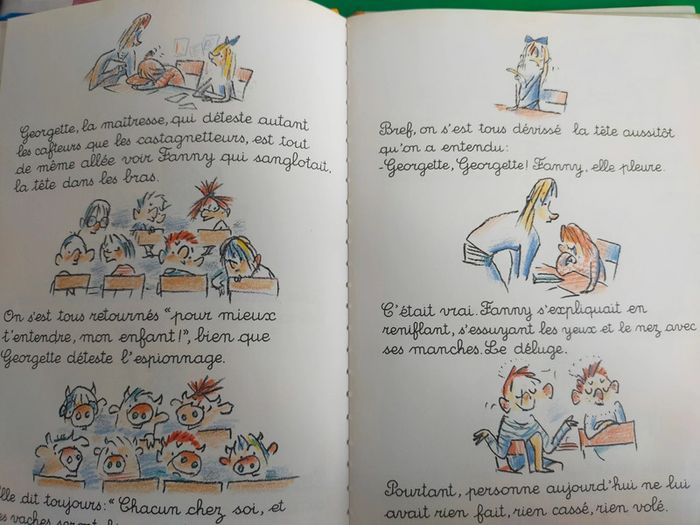 Georgette, la maîtresse, qui déteste autant
les cafteurs que les castagnetteurs, est tout
de même allée voir Fanny qui sanglotait,
la tête dans les bras.
On s'est tous retournés "pour mieux
t'entendre, mon enfant!", bien que
Georgette déteste l'espionnage.
Elle dit toujours: "Chacun chez soi, et
vaches
Bref, on s'est tous dévissé la tête aussitôt
qu'on a entendu:
-Georgette, Georgette! Fanny, elle pleure.
C'était vrai. Fanny s'expliquait en
reniflant, s'essuyant les yeux et le nez avec
ses manches. Le déluge.
Pourtant, personne aujourd'hui ne lui
avait rien fait, rien cassé, rien volé.